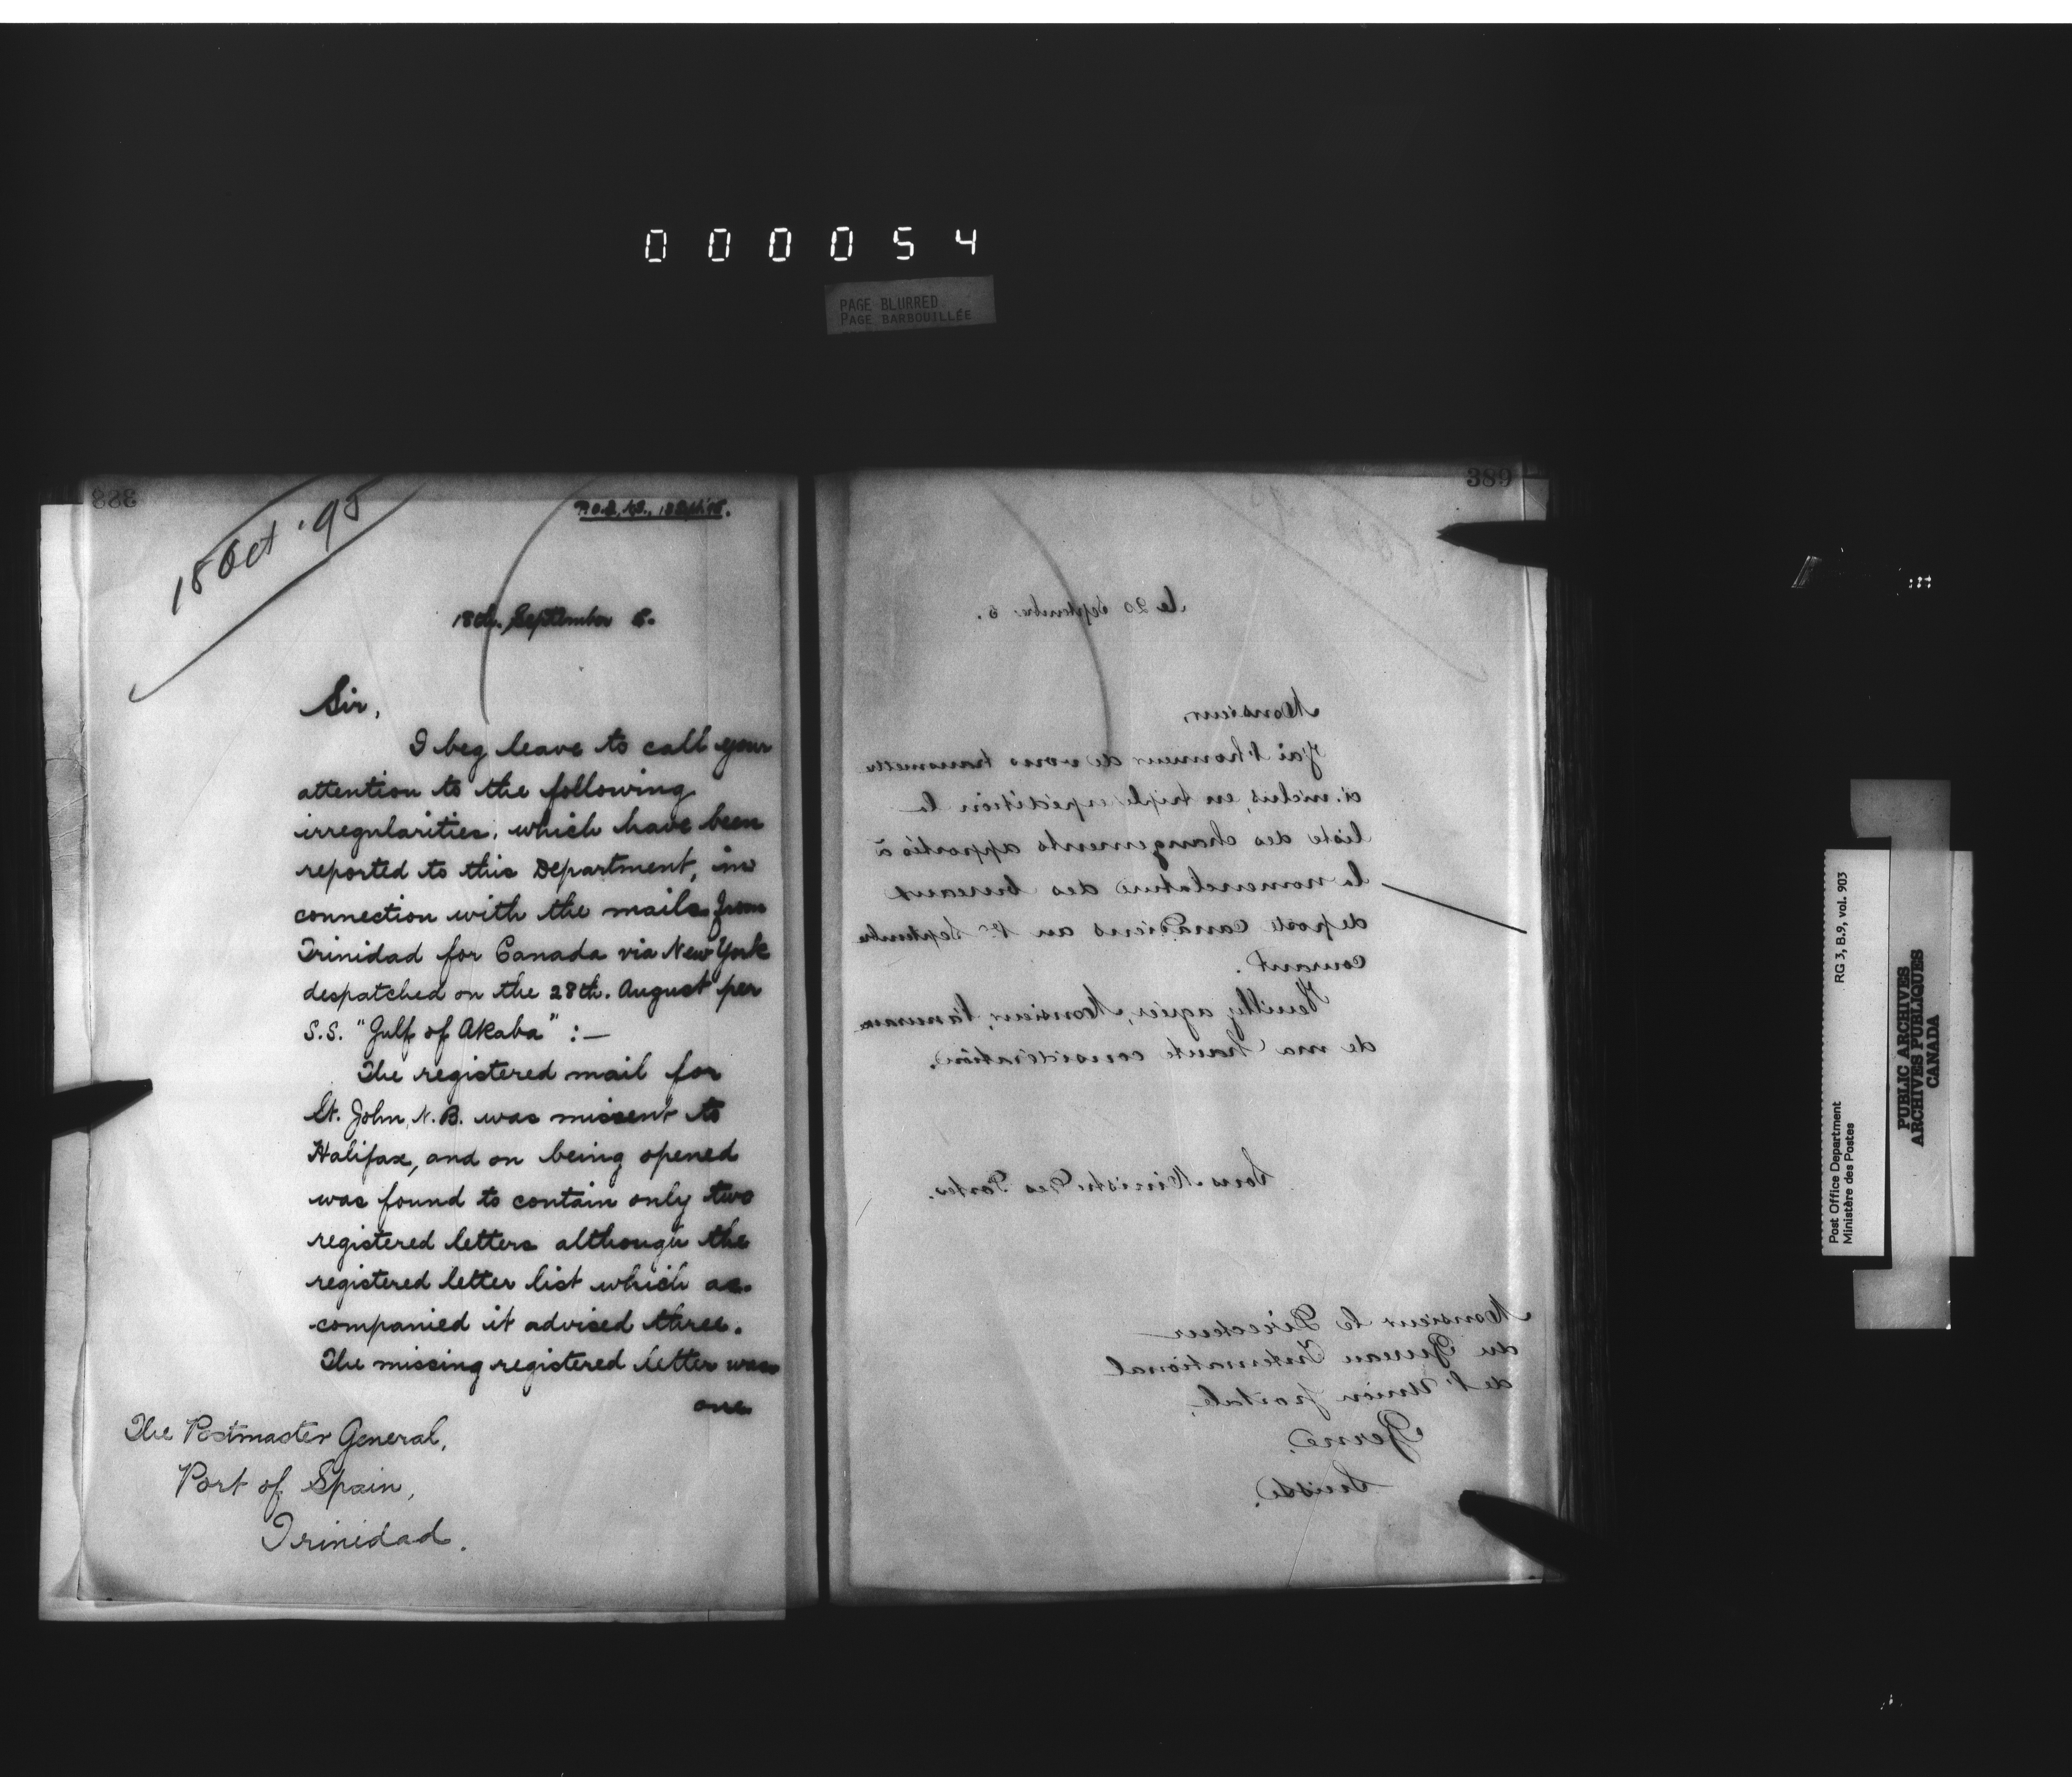 000054
PAGE BLURRED
PAGE BARBOUILLÉE
388
18 Oct '95
18th. September 5.
Sir,
I beg leave to call your
attention to the following
irregularities, which have been
reported to this Department, in
connection with the mails from
Trinidad for Canada via New York
despatched on the 28th. August per
S.S. "Gulf of Akaba" :—
The registered mail for
St. John, N.B. was missent to
Halifax, and on being opened
was found to contain only two
registered letters although the
registered letter list which ac-
companied it advised three.
The missing registered letter was
one
The Postmaster General,
Port of Spain,
Trinidad.
389
le 20 septembre 5.
Monsieur,
J'ai l'honneur de vous transmettre
ci-inclus, en triple expédition la
liste des changements apportés à
la nomenclature des bureaux
de poste canadiens au 1er septembre
courant.
Veuillez agréer, Monsieur, l'assurance
de ma haute considération.
Sous-Ministre des Postes.
Monsieur le Directeur
du Bureau International
de l'Union postale,
Berne.
Suisse.
Post Office Department
Ministère des Postes
RG 3, B.9, vol. 903
PUBLIC ARCHIVES
ARCHIVES PUBLIQUES
CANADA